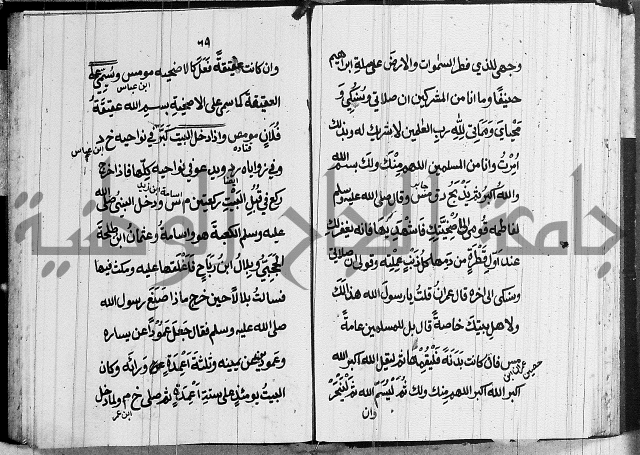 وجهي للذي فطر السموات والارض على ملة ابراهيم
حنيفا وما انا من المشركين ان صلاتي ونسكي و
محياي ومماتي لله رب العلمين لا شريك له وبذلك
امرت وانا من المسلمين اللهم منك ولك بسم الله
والله اكبر ثم يذبح د ق مس وقال صلى الله عليه وسلم
جابر
لفاطمة قومي الى اضحيتك فاشهديها فانه يغفر لك
عند اول قطرة من دمها كل ذنب عملتيه وقولي ان صلاتي
ونسكي الى اخره قال عمران قلت يا رسول الله هذا لك
ولاهل بيتك خاصة قال بل للمسلمين عامة
مس فان كانت بدنة فليقمها ثم ليقل الله اكبر الله
اكبر الله اكبر اللهم منك ولك ثم ليسم الله ثم لينحر
وان
٦٩
وان كانت عقيقة فعل كالاضحية مو مس ويسمي على
ابن عباس
العقيقة كما يسمي على الاضحية بسم الله عقيقة
فلان مو مص واذا دخل البيت كبر في نواحيه خ د
قتادة
ابن عباس
وفي زواياه د ويدعو في نواحيه كلها فاذا خرج
ركع في قبل البيت ركعتين م س ودخل النبي صلى الله
اسامة ابن زيد
عليه وسلم الكعبة هو واسامة وعثمان ابن طلحة
الحجبي وبلال ابن رباح فاغلقها عليه ومكث فيها
فسالت بلالا حين خرج ماذا صنع رسول الله
صلى الله عليه وسلم فقال جعل عمودا عن يساره
وعمودين عن يمينه وثلثة اعمدة وراءه وكان
البيت يومئذ على ستة اعمدة ثم صلى خ م ولما دخل
ابن عمر
جامعة النجاح الوطنية